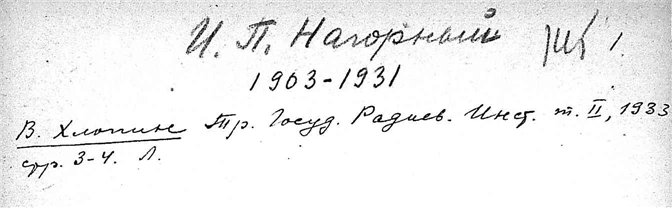 И. П. Нагорный
1903-1931
В. Хлопин Тр. Госуд. Радиев. Инст. т. II, 1933
стр. 3-4. Л.